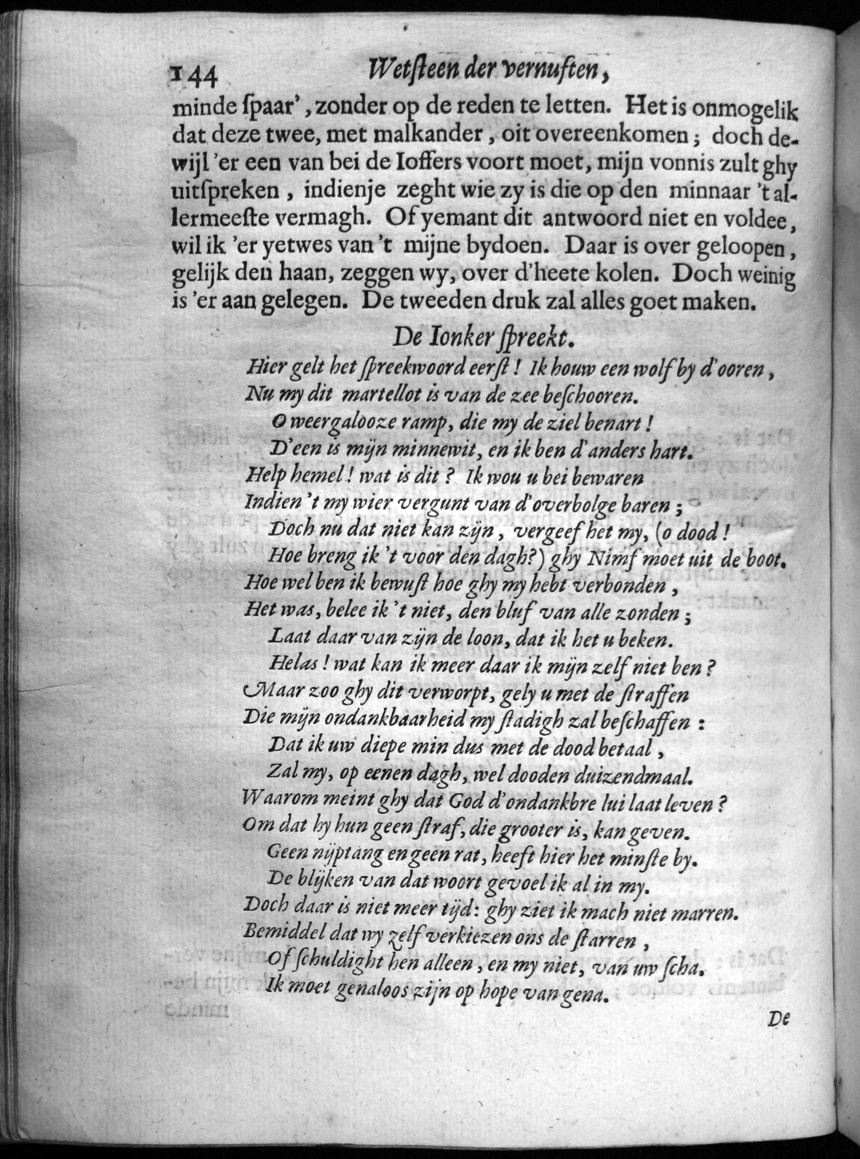 144 Wetſteen der vernuften,
minde ſpaar', zonder op de reden te letten. Het is onmogelik
dat deze twee, met malkander, oit overeenkomen; doch de-
wijl 'er een van bei de Ioffers voort moet, mijn vonnis zult ghy
uitſpreken, indienje zeght wie zy is die op den minnaar 't al-
lermeeſte vermagh. Of yemant dit antwoord niet en voldee,
wil ik 'er yetwes van 't mijne bydoen. Daar is over geloopen,
gelijk den haan, zeggen wy, over d'heete kolen. Doch weinig
is 'er aan gelegen. De tweeden druk zal alles goet maken.
De Ionker ſpreekt.
Hier gelt het ſpreekwoord eerſt! Ik houw een wolf by d'ooren,
Nu my dit martellot is van de zee beſchooren.
O weergalooze ramp, die my de ziel benart!
D'een is mijn minnewit, en ik ben d'anders hart.
Help hemel! wat is dit? Ik wou u bei bewaren
Indien 't my wier vergunt van d'overbolge baren;
Doch nu dat niet kan zijn, vergeef het my, (o dood!
Hoe breng ik 't voor den dagh?) ghy Nimf moet uit de boot.
Hoe wel ben ik bewuſt hoe ghy my hebt verbonden,
Het was, belee ik 't niet, den bluf van alle zonden;
Laat daar van zijn de loon, dat ik het u beken.
Helas! wat kan ik meer daar ik mijn zelf niet ben?
Maar zoo ghy dit verworpt, gely u met de ſtraffen
Die mijn ondankbaarheid my ſtadigh zal beſchaffen:
Dat ik uw diepe min dus met de dood betaal,
Zal my, op eenen dagh, wel dooden duizendmaal.
Waarom meint ghy dat God d'ondankbre lui laat leven?
Om dat hy hun geen ſtraf, die grooter is, kan geven.
Geen nijptang en geen rat, heeft hier het minſte by.
De blijken van dat woort gevoel ik al in my.
Doch daar is niet meer tijd: ghy ziet ik mach niet marren.
Bemiddel dat wy zelf verkiezen ons de ſtarren,
Of ſchuldight hen alleen, en my niet, van uw ſcha.
Ik moet genaloos zijn op hope van gena.
De